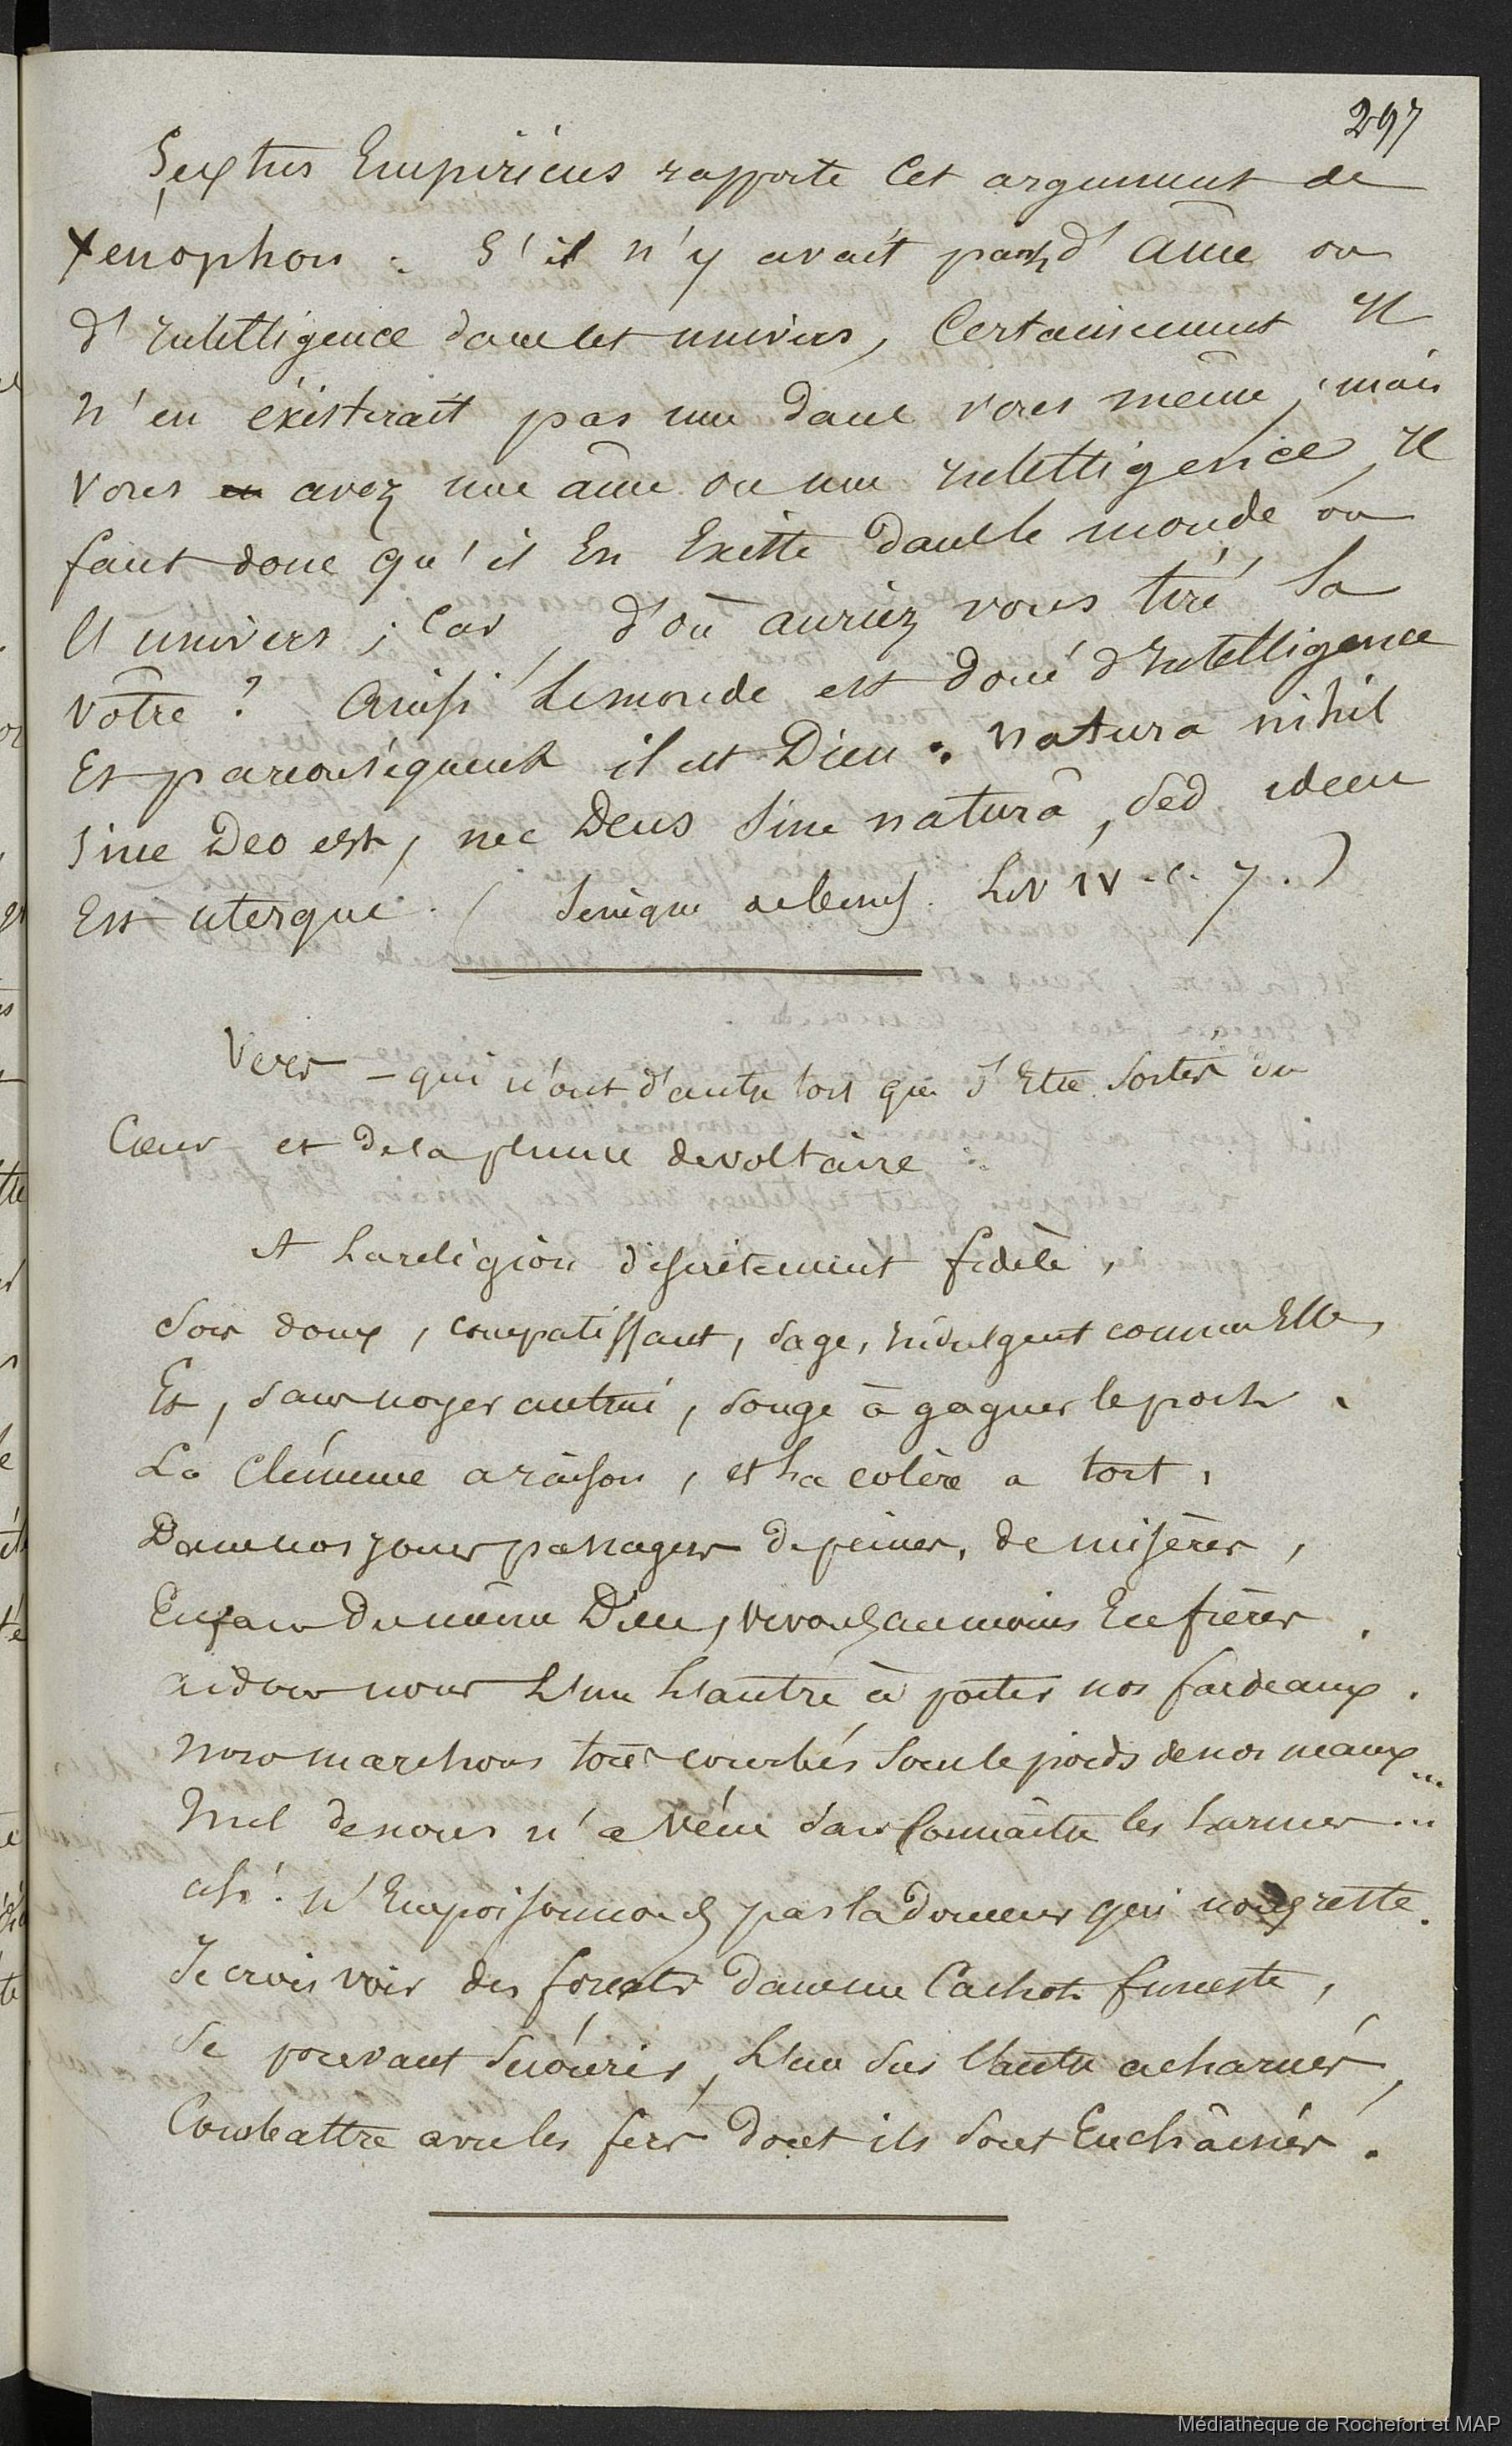 297
Sextus Empiricus rapporte cet argument de
Xénophon : S'il n'y avait pas d'âme ou
d'Intelligence dans cet univers, Certainement Il
n'en éxisterait pas une dans vous même ; mais
vous avez une âme ou une Intelligence, Il
faut donc qu'il En Existe dans le monde ou
l'univers ; Car, d'où auriez vous tiré la
vôtre ? Ainsi le monde est doué d'Intelligence
Et par conséquent il est Dieu. Natura nihil
sine Deo est, nec Deus sine naturâ, sed idem
Est uterque. ( Senèque de benef. Liv IV. c. 7. )
Vers - qui n'ont d'autre tort que d'Etre sortis du
Cœur et de la plume de voltaire :
A la religion discrètement fidèle,
Sois doux, compatissant, sage, indulgent comme Elle,
Et, sans noyer autrui, songe à gagner le port.
La clémence a raison, et la colère a tort,
Dans nos jours passagers de peines, de misères,
Enfans du même Dieu, vivons au moins En frères.
aidons nous l'un l'autre à porter nos fardeaux.
Nous marchons tous courbés sous le poids de nos maux...
Nul de nous n'a vécu sans Connaître les larmes...
ah ! N'Empoisonnons pas la douceur qui nous reste.
Je crois voir des forçats dans un Cachot funeste,
Se pouvant secourir, l'un sur l'autre acharnés,
Combattre avec les fers dont ils sont Enchâinés.
Médiathèque de Rochefort et MAP